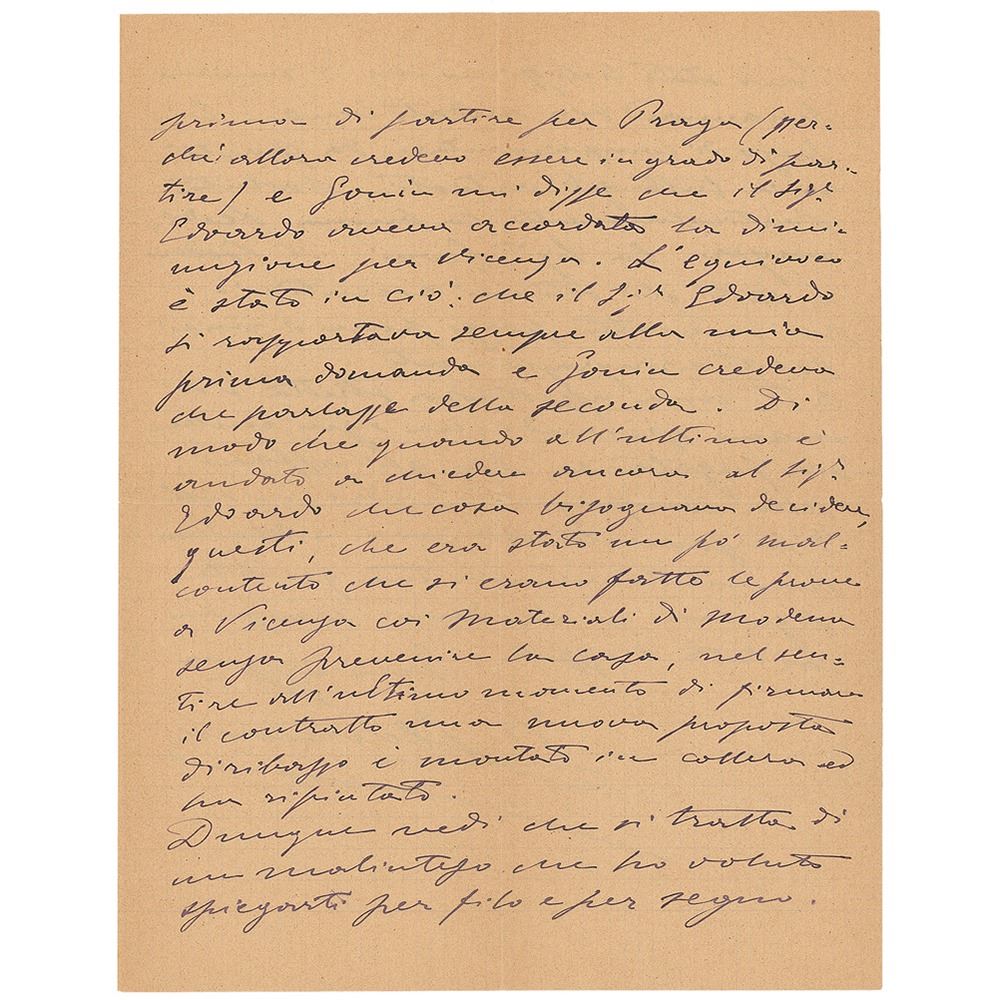 prima di partire per Praga (per=
chè allora credevo essere in grado di par=
tire) e Gonin mi disse che il Sigr
Edoardo aveva accordato la dimi=
nuzione per Vicenza. L'equivoco
è stato in ciò: che il Sigr Edoardo
si rapportava sempre alla mia
prima domanda e Gonin credeva
che parlasse della seconda. Di
modo che quando all'ultimo è
andato a chiedere ancora al Sigr
Edoardo che cosa bisognava decidere,
questi, che era stato un pò mal=
contento che si erano fatte le prove
a Vicenza coi materiali di Modena
senza prevenire la casa, nel sen=
tire all'ultimo momento di firmare
il contratto una nuova proposta
di ribasso è montato in collera ed
ha rifiutato.
Dunque vedi che si tratta di
un malinteso che ho voluto
spiegarti per filo e per segno.